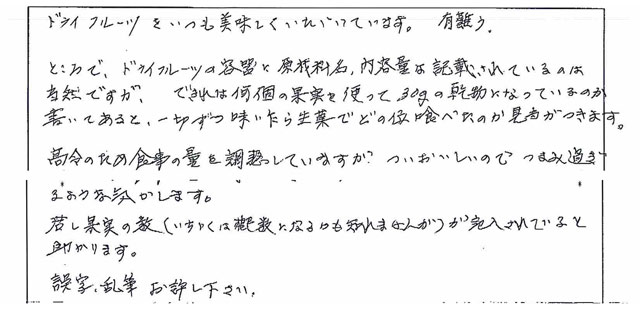 ドライフルーツをいつも美味しくいただいています。 有難う.
ところで、ドライフルーツの容器に原材料名,内容量は記載されているのは
当然ですが、 できれば何個の果実を使って30gの乾物になっているのか
書いてあると、一切ずつ味いたら生菓でどの位喰べたのか見当がつきます。
高令のため食事の量を調整していますが ついおいしいので つまみ過ぎ
るような気がします。
若し果実の数(いちぢくは概数になるかも知れませんが)が記入されていると
助かります。
誤字、乱筆 お許し下さい.